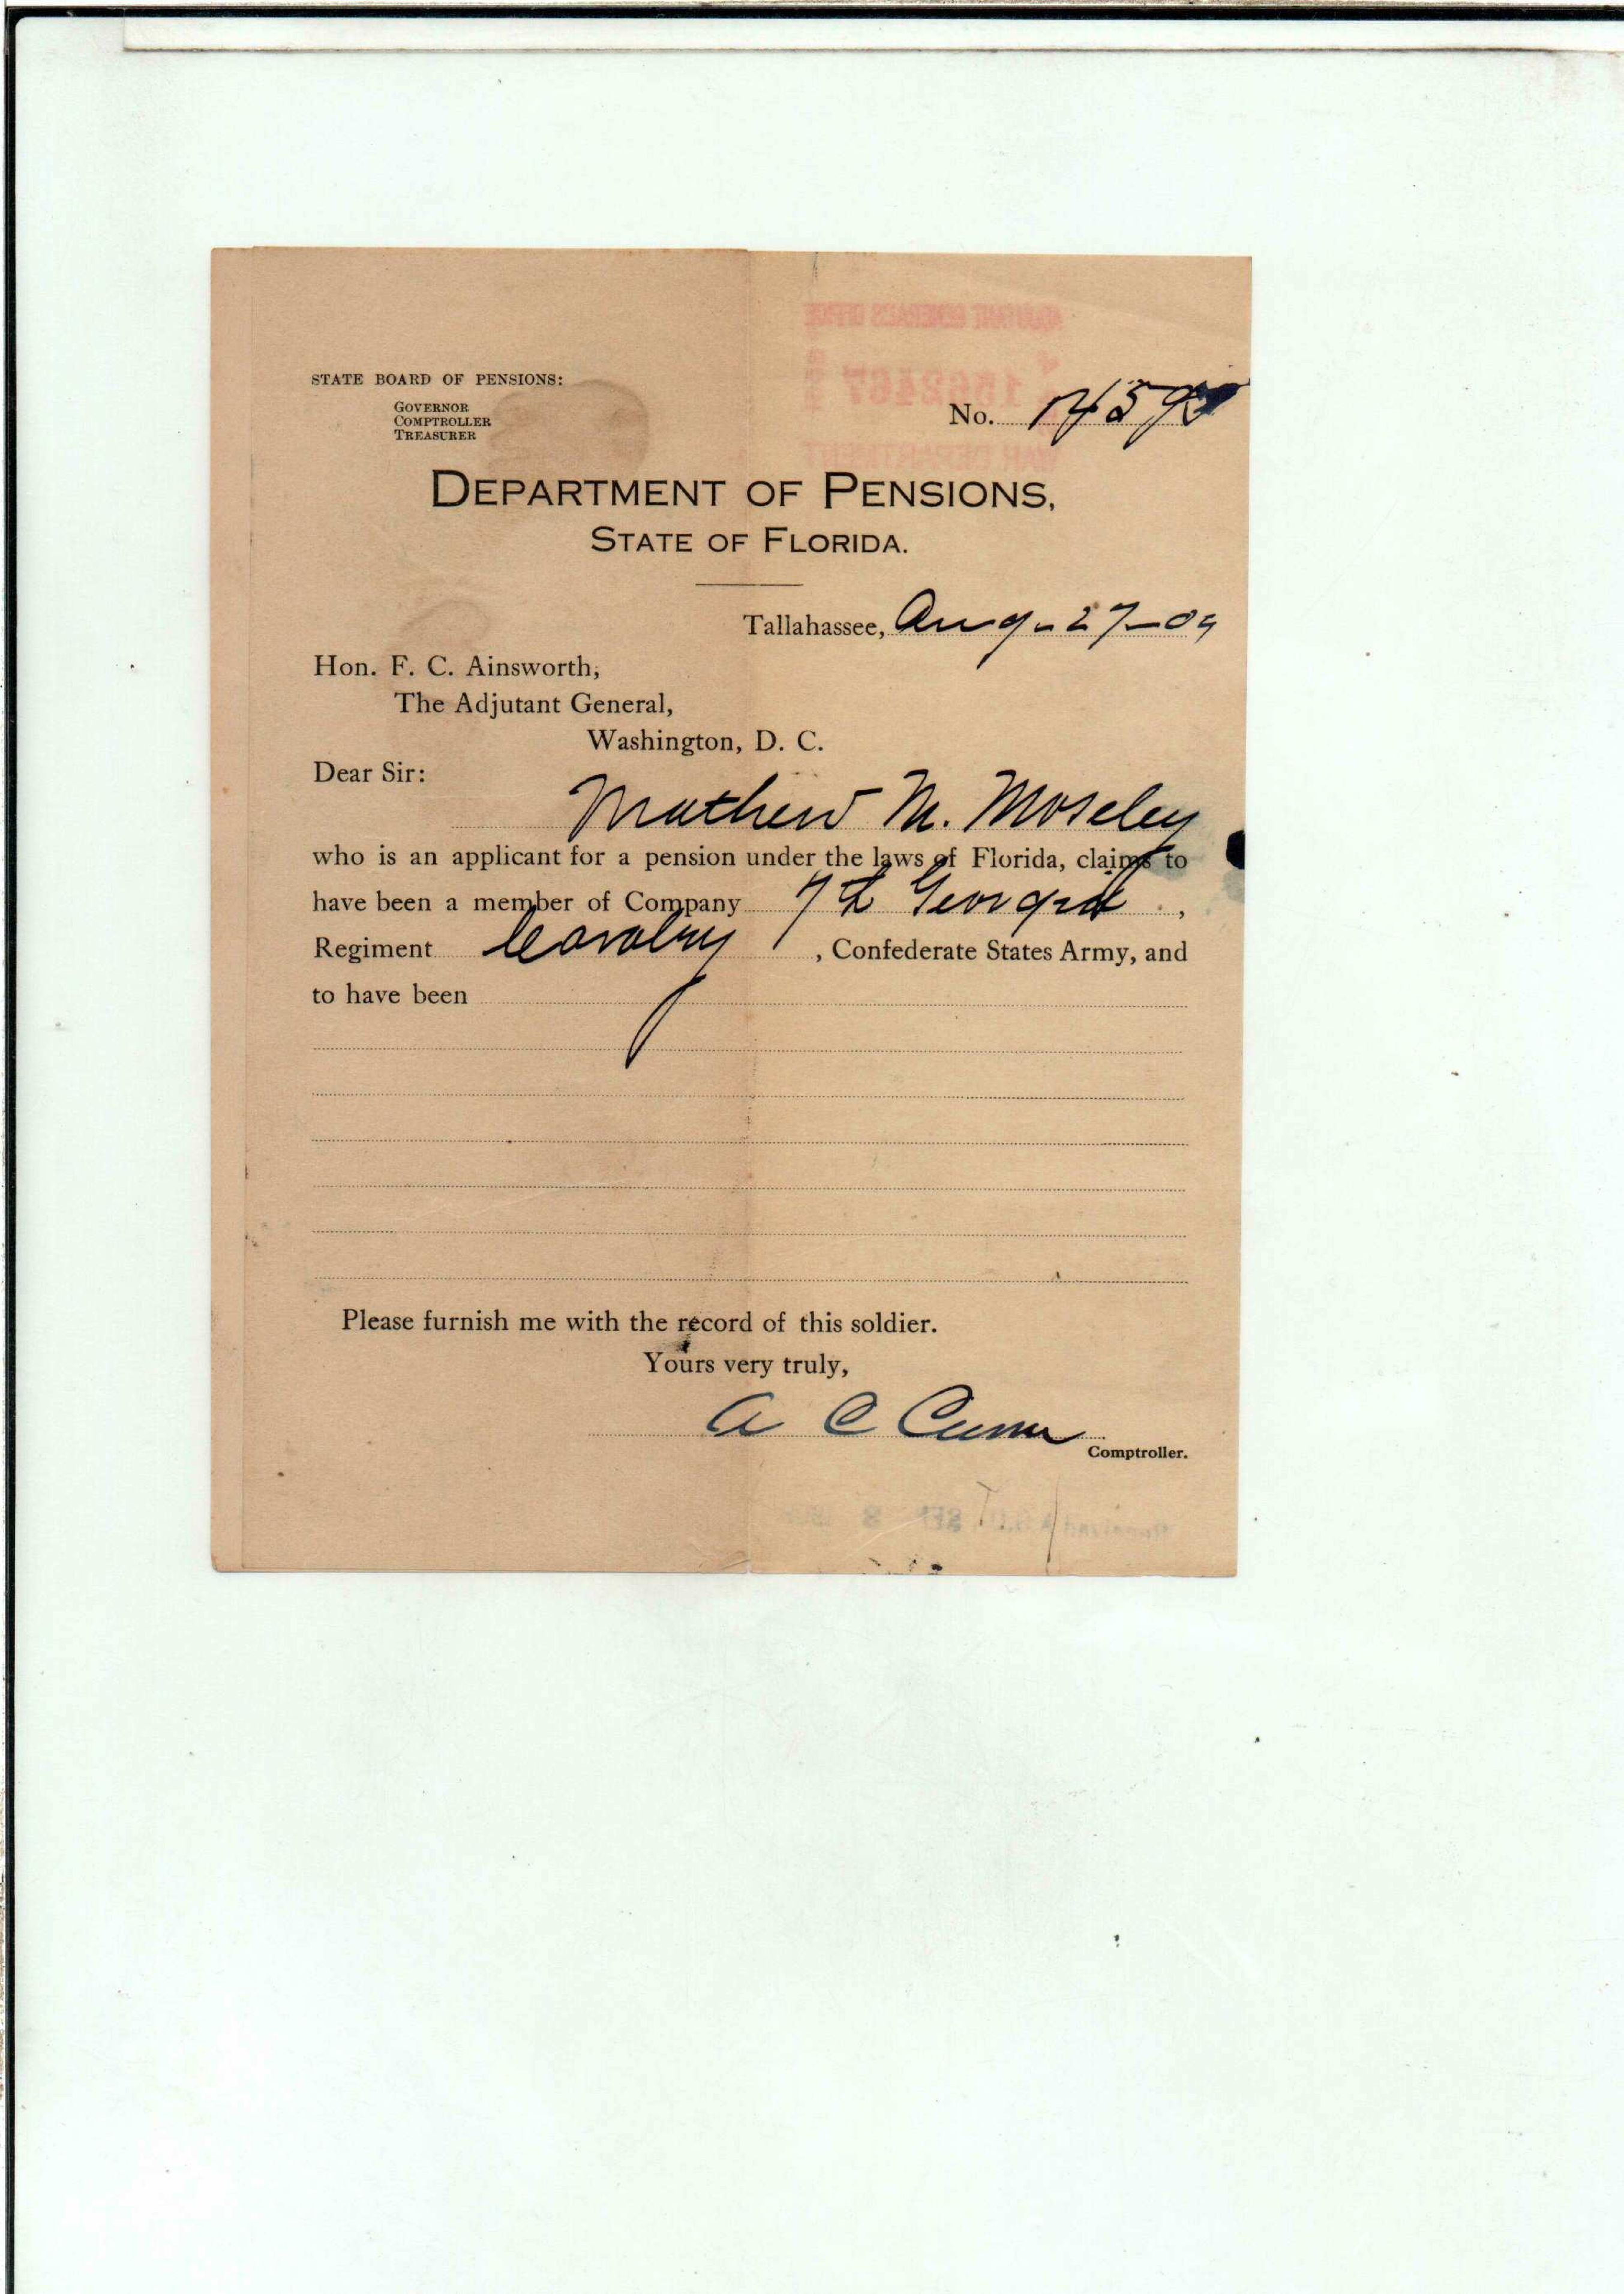 STATE BOARD OF PENSIONS:
GOVERNOR
COMPTROLLER
TREASURER
No.
DEPARTMENT OF PENSIONS,
STATE OF FLORIDA.
Tallahassee, Aug - 27 - 09
Hon. F. C. Ainsworth,
The Adjutant General,
Washington, D. C.
Dear Sir:
Mathew M. Moseley
who is an applicant for a pension under the laws of Florida, claims to
have been a member of Company 7th Georgia,
Regiment Cavalry, Confederate States Army, and
to have been
Please furnish me with the record of this soldier.
Yours very truly,
A C Croom
Comptroller.